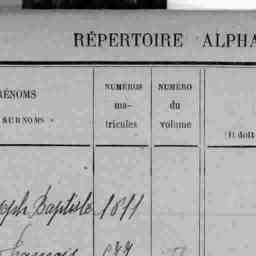 RÉPERTOIRE ALPHA
RÉNOMS
SURNOMS
NUMÉROS
ma-
tricules
NUMÉRO
du
volume
(Il doit
oseph Baptiste 1811